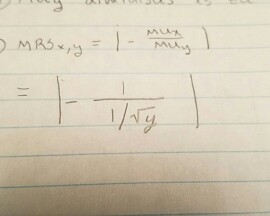 ) MRSx,y = | - MUx/MUy |
= | - 1/(1/√y) |